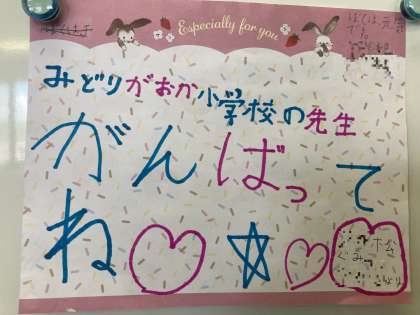 Especially for you
みどりがおか小学校の先生
がんばって
ね♡☆♡